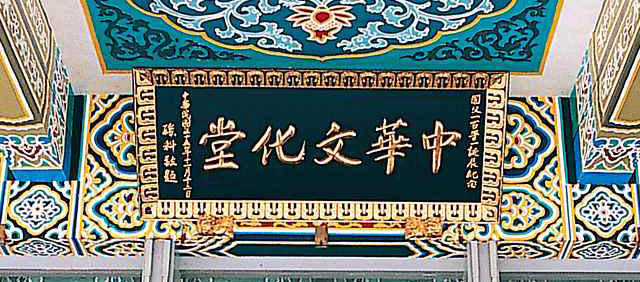 國父一百年誕辰紀念
中華文化堂
中華民國五十五年十一月十二日
孫科敬題